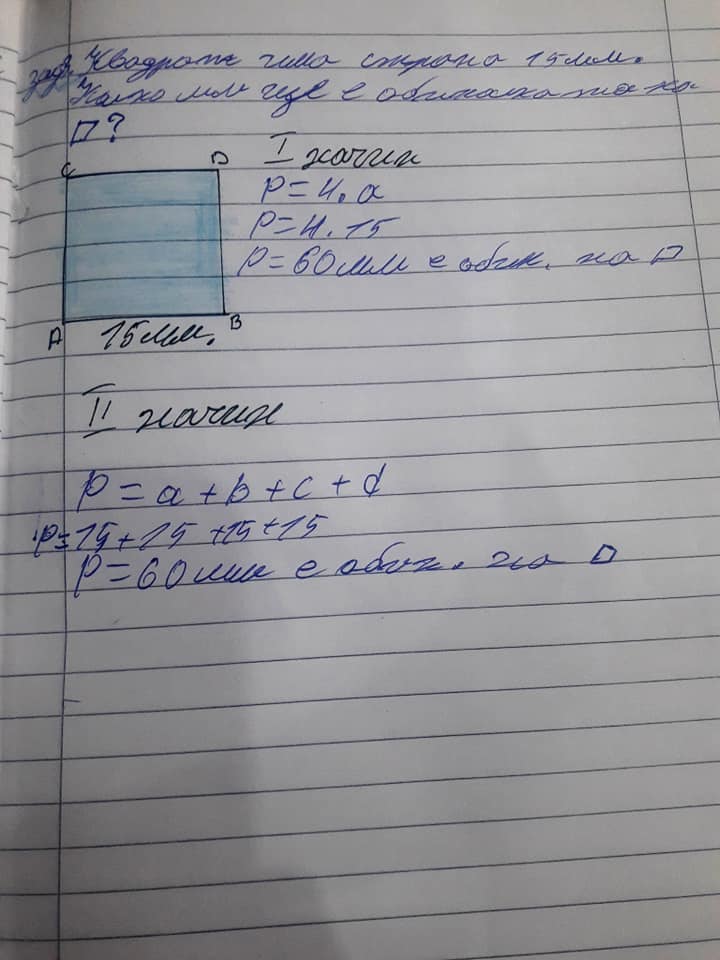 зад. Квадрат има страна 15мм.
Колко мм ще е обиколката на
□?
C D
I начин
P=4.a
P=4.15
P=60мм е обик. на □
A 15мм. B
II начин
P=a+b+c+d
P=15+15+15+15
P=60мм е обик. на □